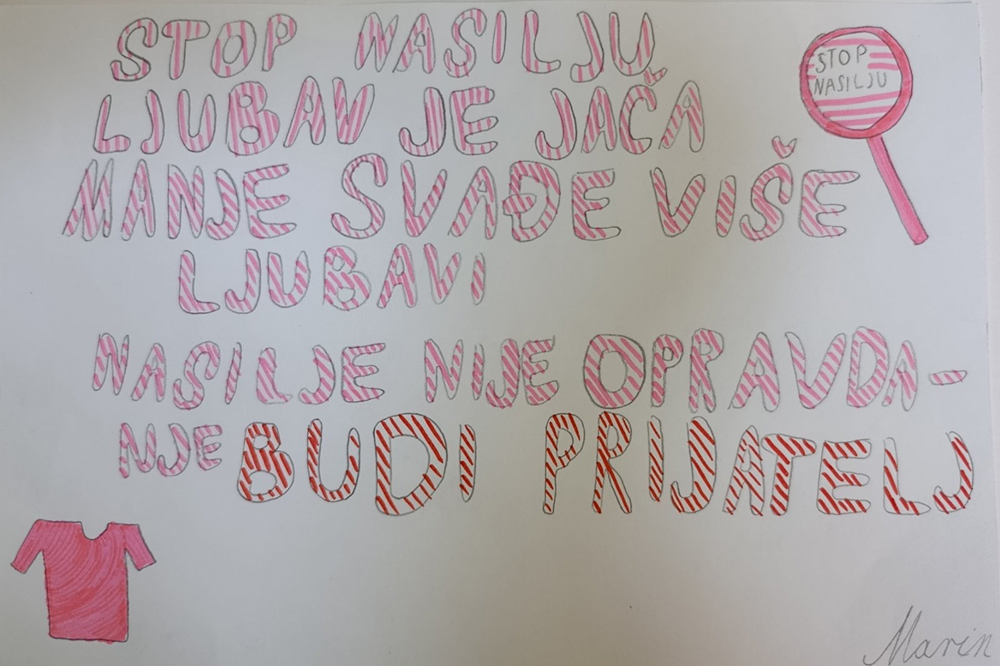 STOP NASILJU
LJUBAV JE JAČA
MANJE SVAĐE VIŠE
LJUBAVI
NASILJE NIJE OPRAVDA-
NJE BUDI PRIJATELJ
STOP
NASILJU
Marin